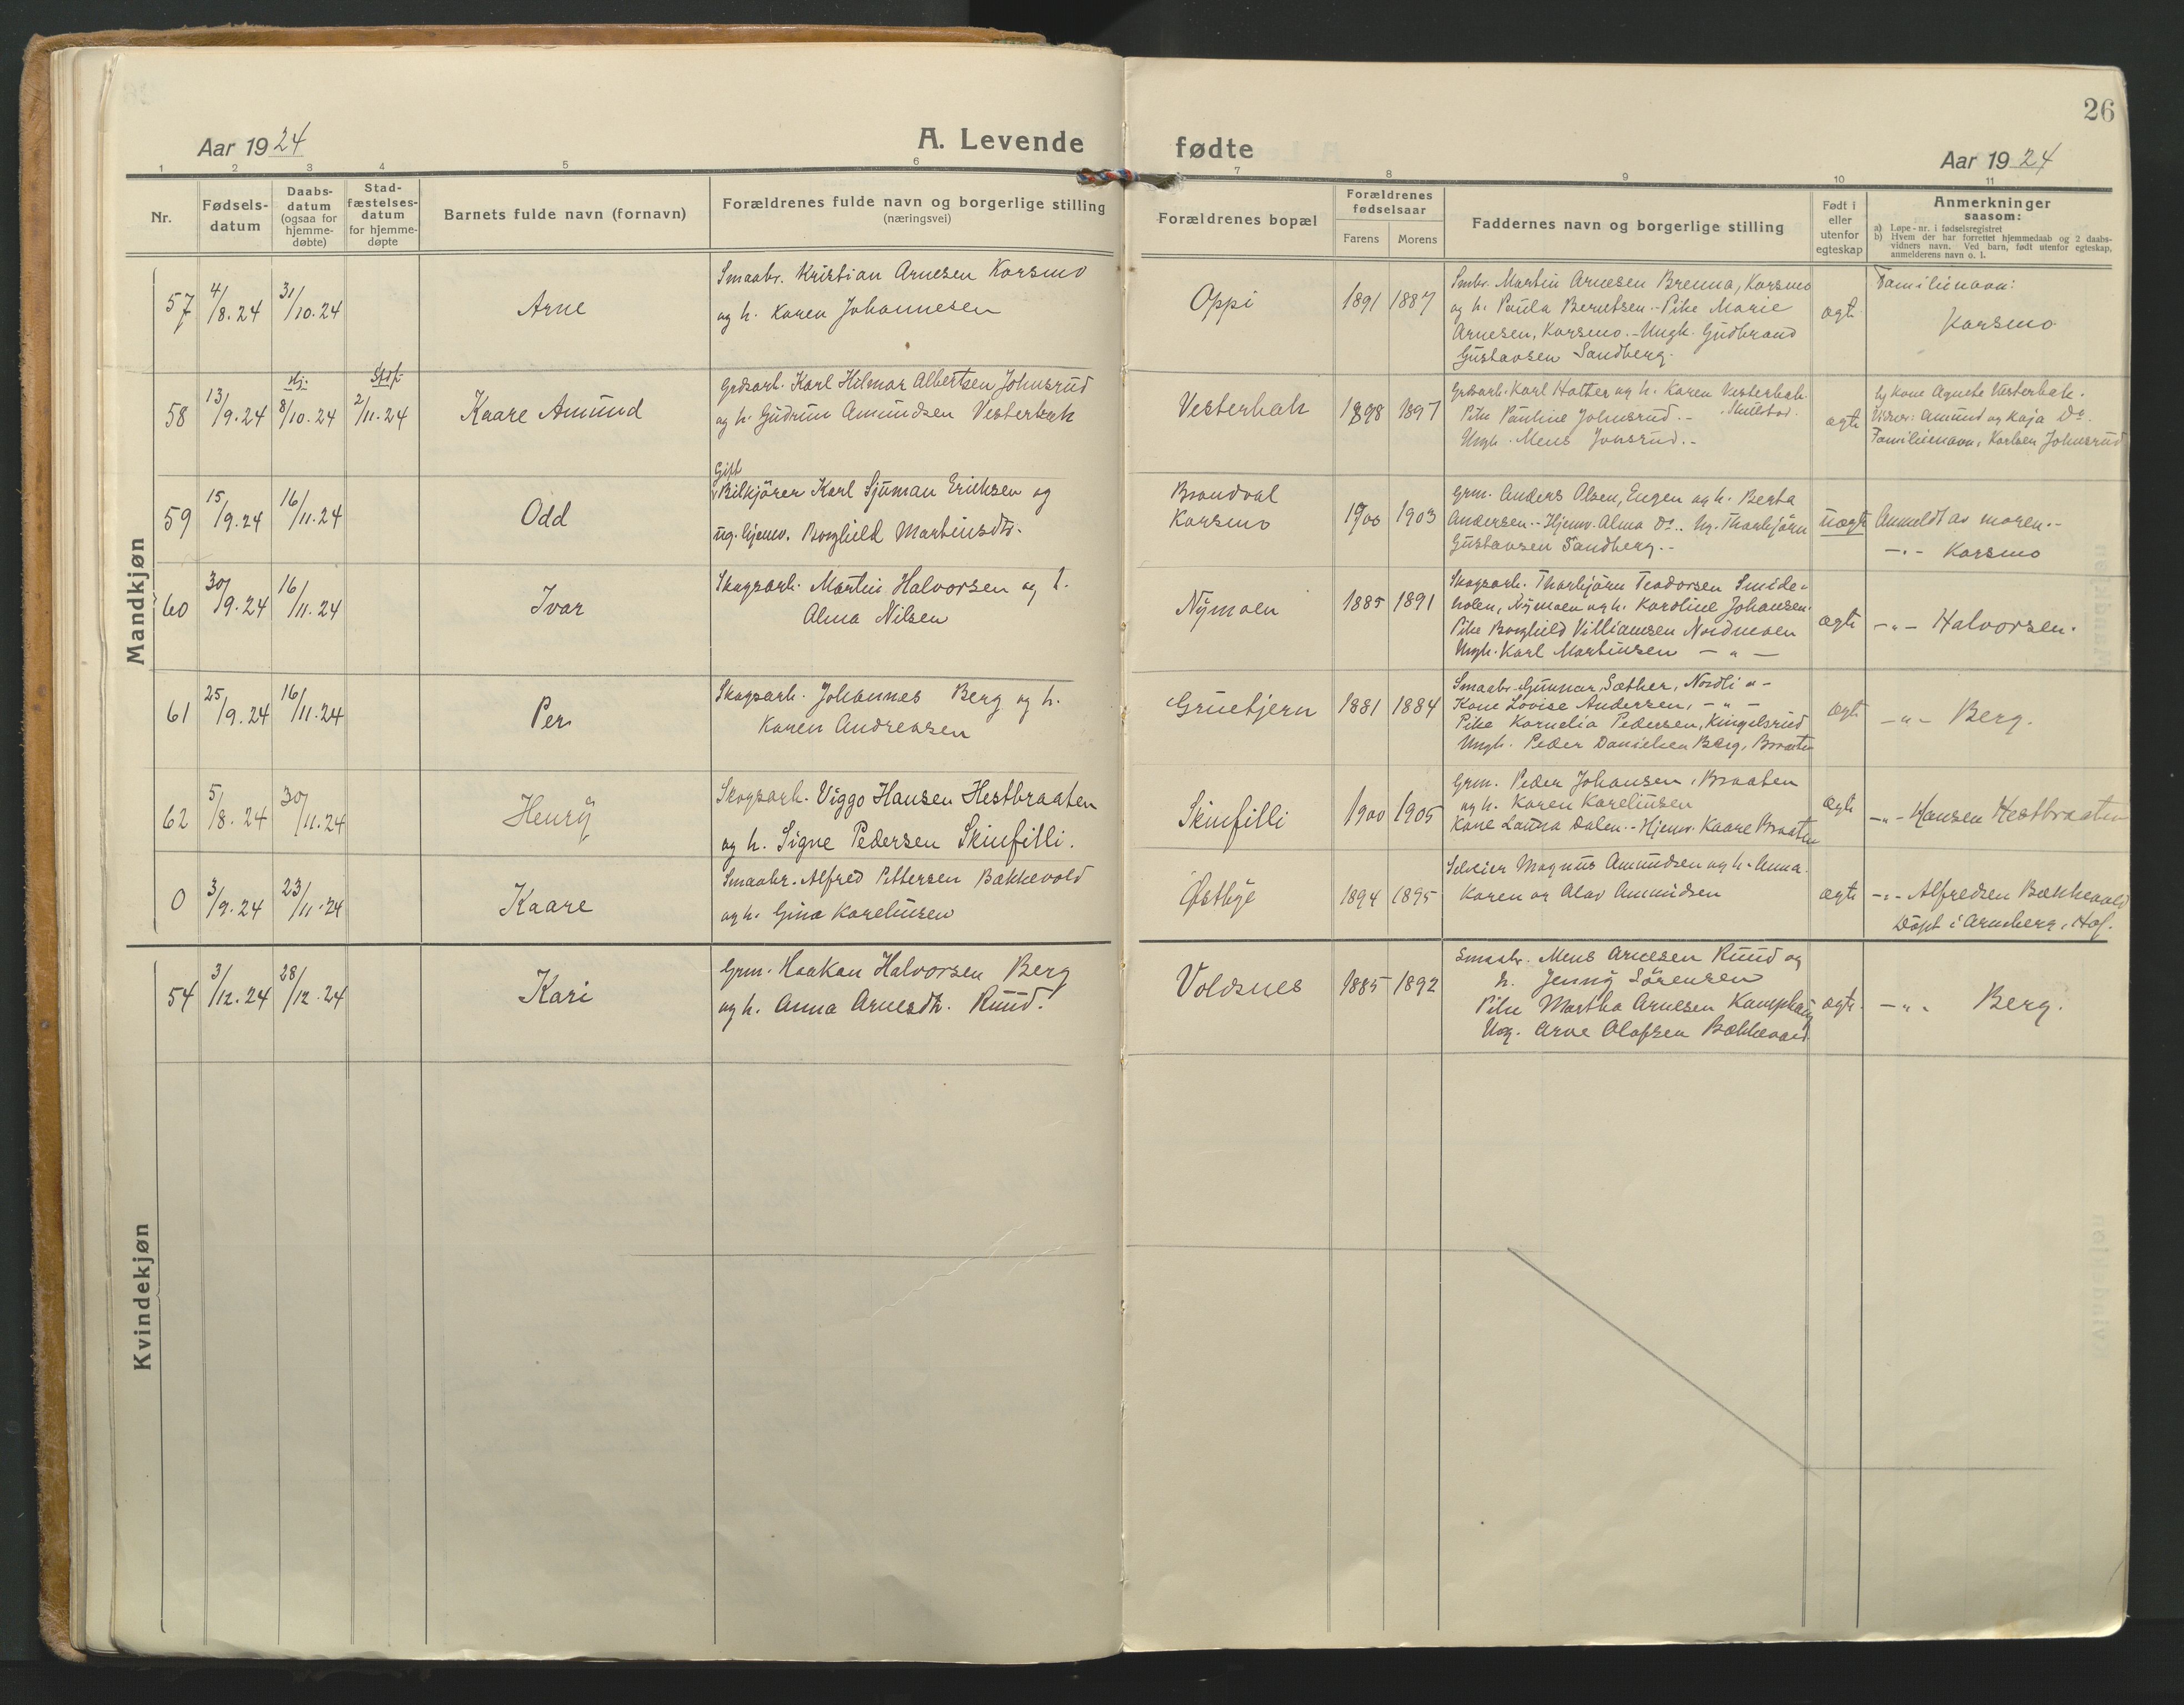 26
Aar 1924
A. Levende fødte
Aar 1924
1 2 3 4 5 6 7 8 9 10 11
Nr.
Fødsels-
datum
Daabs-
datum
(ogsaa for
hjemme-
døbte)
Stad-
fæstelses-
datum
for hjemme-
døpte
Barnets fulde navn (fornavn)
Forældrenes fulde navn og borgerlige stilling
(næringsvei)
Forældrenes bopæl
Forældrenes
fødselsaar
Farens Morens
Faddernes navn og borgerlige stilling
Født i
eller
utenfor
egteskap
Anmerkninger
saasom:
a) Løpe-nr. i fødselsregistret
b) Hvem der har forrettet hjemmedaab og 2 daabs-
vidners navn. Ved barn, født utenfor egteskap,
anmelderens navn o. l.
Mandkjøn
57 4/8.24 31/10.24
Arne
Smaabr. Kristian Arnesen Korsmo
og h. Karen Johannesen
Oppi
1891 1887
Smbr. Martin Arnesen Brenna, Korsmo
og h. Paula Berntsen.- Pike Marie
Arnesen, Korsmo.- Ungk. Gudbrand
Gustavsen Sandberg.
ægte
Familienavn:
Korsmo
58 13/9.24 Hj: 8/10.24 Stdf. 2/11.24
Kaare Amund
Grdsarb. Karl Hilmar Albertsen Johnsrud
og h. Gudrun Amundsen Vesterbak
Vesterbak
1898 1897
Grdsarb. Karl Holter og h. Karen Vesterbak.
Pike Pauline Johnsrud.-
Ungk. Mens Jonsrud.-
ægte
Kone Agnete Vesterbak.
Vidner: Amund og Kaja Do.
Familienavn: Karlsen Johnsrud
59 15/9.24 16/11.24
Odd
Gift
Bilkjörer Karl Sjuman Eriksen og
ug. hjemv. Borghild Martinsdtr.
Brandval
Korsmo
1900 1903
Grm. Anders Olsen, Eugen og h. Berta
Andersen.- Hjemv. Alma Do.. Ug. Thorbjörn
Gustavsen Sandberg.-
uægte
Anmeldt av moren.-
-"- Korsmo
60 30/9.24 16/11.24
Ivar
Skogsarb. Martin Halvorsen og h.
Alma Nilsen
Nymoen
1885 1891
Skogsarb. Thorbjörn Teodorsen Smide-
holen, Nymoen og h. Karoline Johansen.
Pike Borghild Villiamsen Nordmoen
Ungk. Karl Martinsen -"-
ægte
-"- Halvorsen.
61 25/9.24 16/11.24
Per
Skogsarb. Johannes Berg og h.
Karen Andreasen
Gruetjern
1881 1884
Smaabr. Gunnar Sæther, Nordli "-
Kone Lovise Andersen, -"-
Pike Kornelia Pedersen, Kingelsrud
Ungk. Peder Danielsen Berg, Braaten
ægte
-"- Berg.
62 5/8.24 30/11.24
Henry
Skogsarb. Viggo Hansen Hestbraaten
og h. Signe Pedersen Skinfilli.
Skinfilli
1900 1905
Grm. Peder Johansen, Braaten
og h. Karen Karelinsen
Kone Laura Dalen.- Hjemv. Kaare Braaten
ægte
-"- Hansen Hestbraaten
0 3/9.24 23/11.24
Kaare
Smaabr. Alfred Pettersen Bakkevold
og h. Gina Karelinsen
Østbye
1894 1895
Selveier Magnus Amundsen og h. Anna.
Karen og Alav Amundsen
ægte
-"- Alfredsen Bækkevold
Döpt i Arneberg, Hof.
Kvindekjøn
54 3/12.24 28/12.24
Kari
Grm. Haakon Halvorsen Berg
og h. Anna Arnesdtr. Ruud.
Voldsnes
1885 1892
Smaabr. Mens Arnesen Ruud og
h. Jenny Sörensen
Pike Martha Arnesen Kamphaug
Ung. Arve Olafsen Bækkevold.
ægte.
-"- Berg.